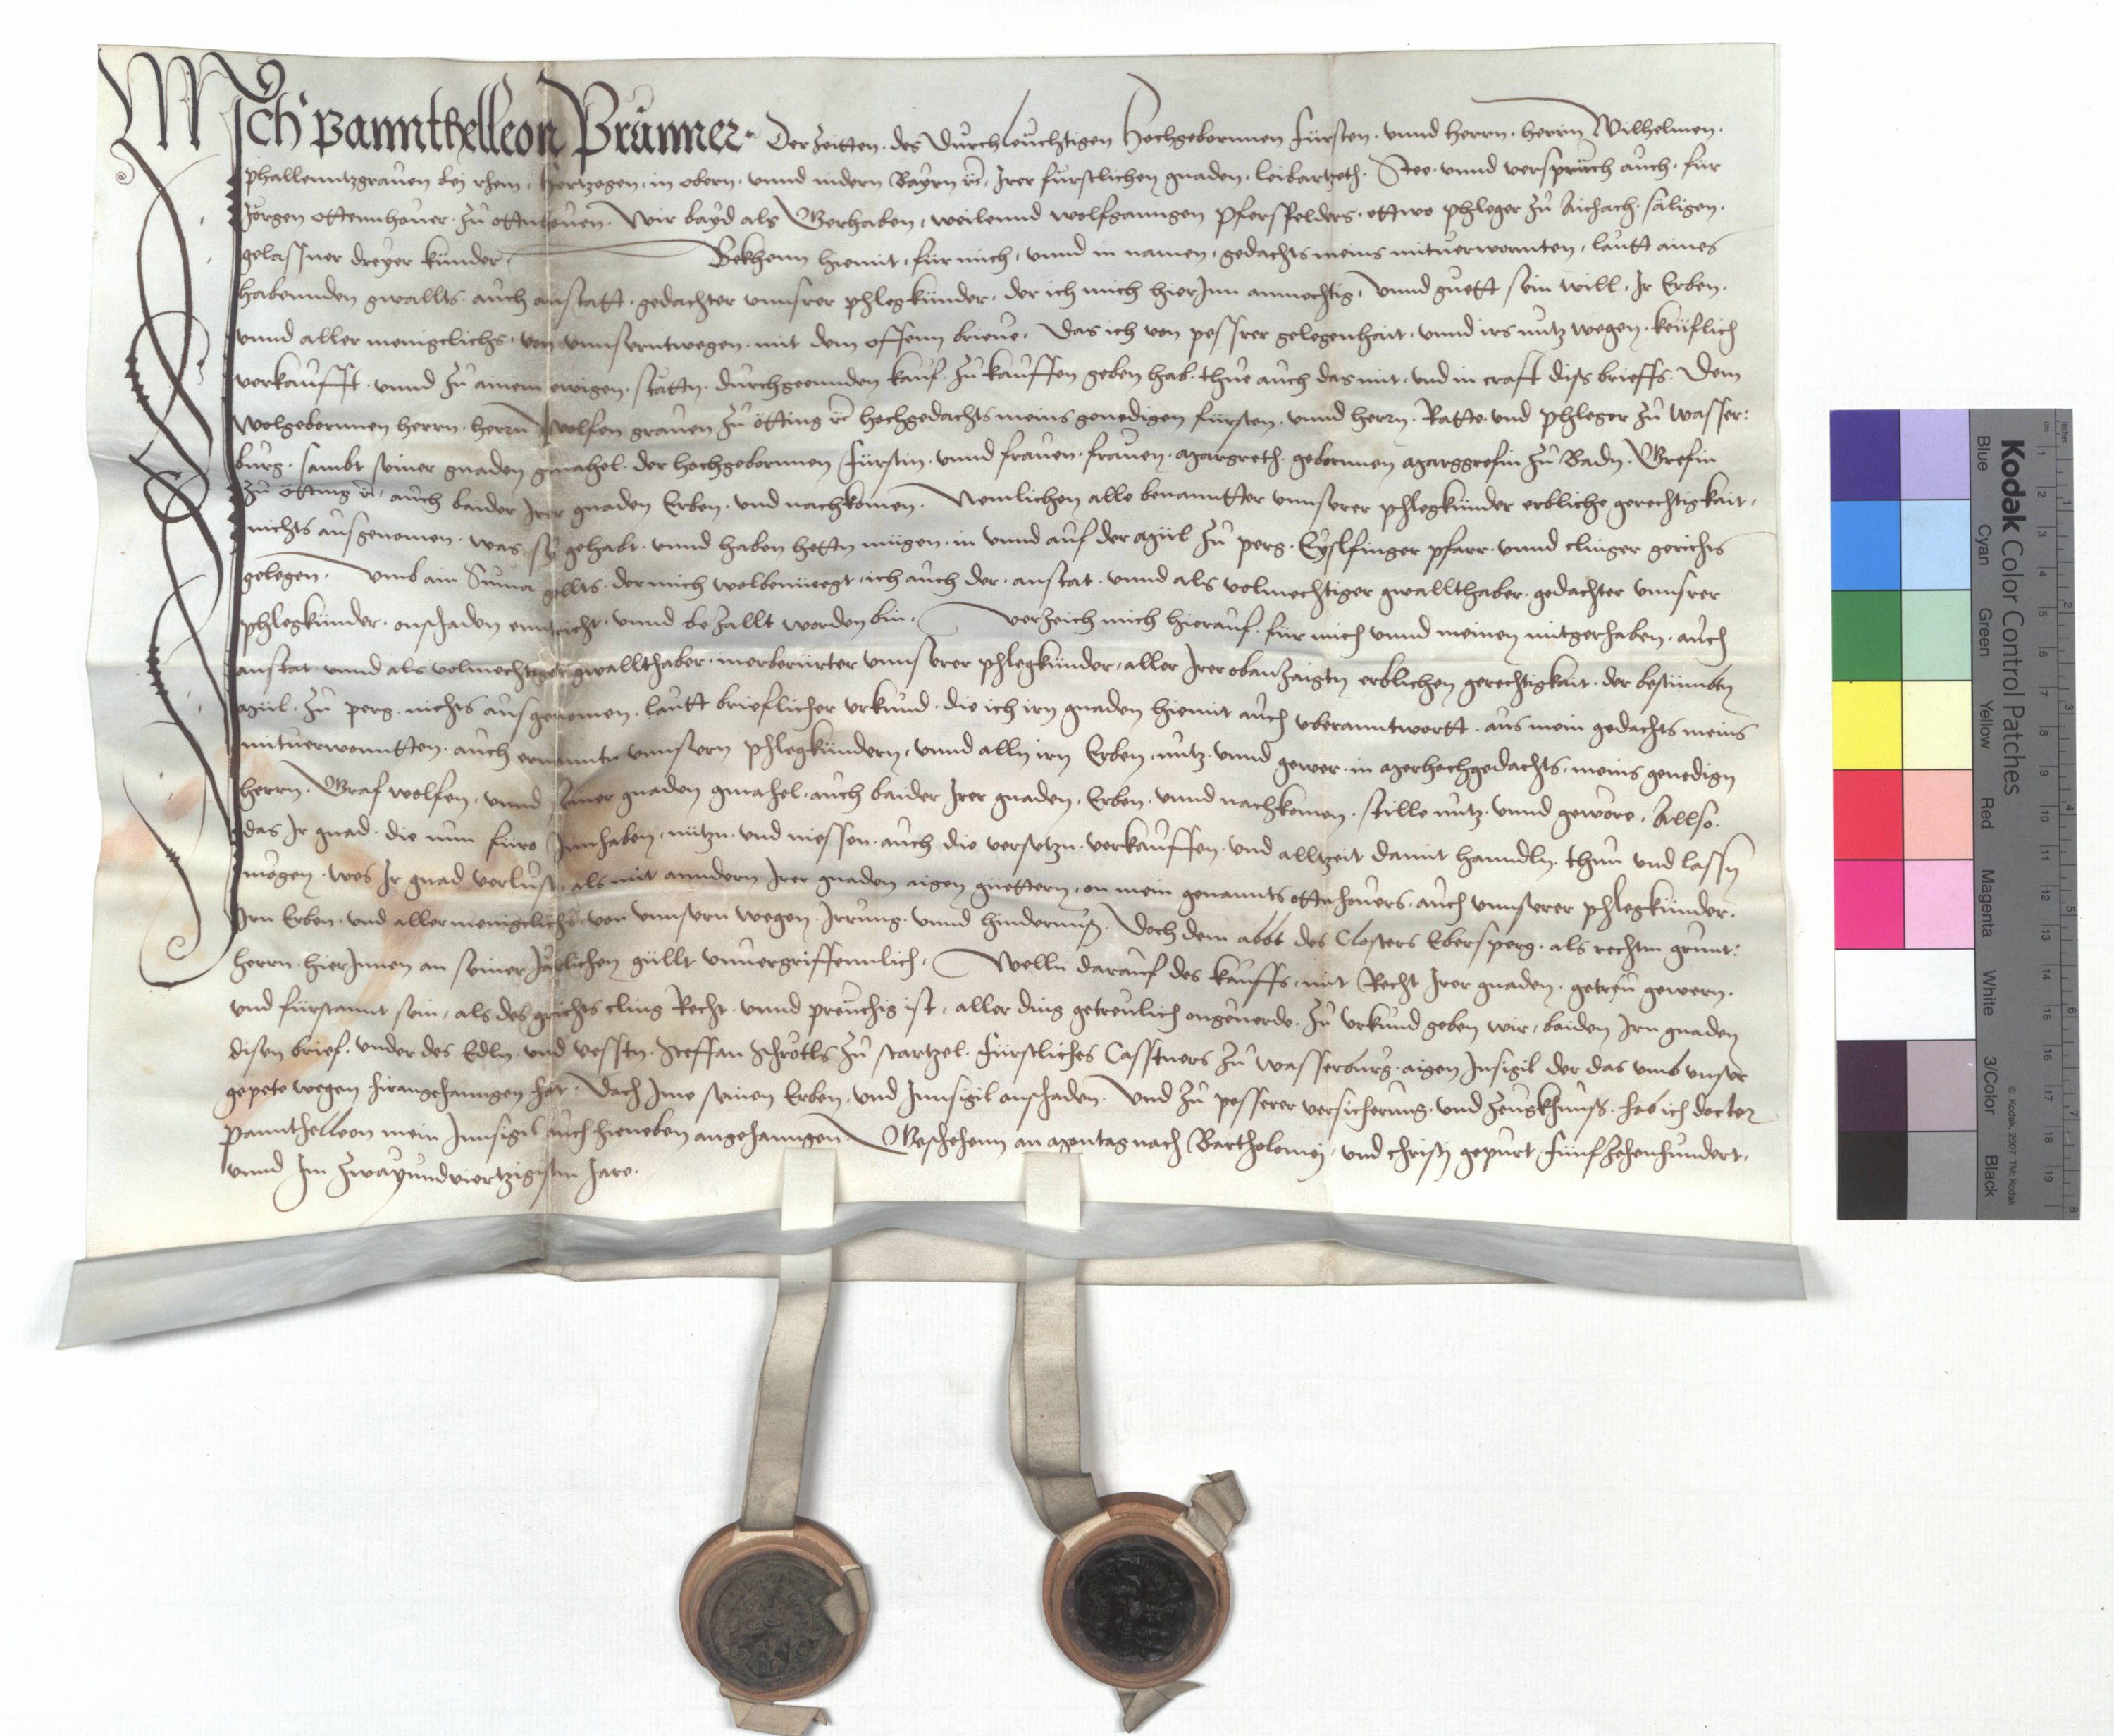 Ich Pannthelleon Prunner. Der Zeitten. des Durchleuchtigen Hochgebornnen fürsten. vnnd herrn. herrn Wilhelmen.
phallenntzgrauen bej rhein, Hertzogen, in obern. vnnd nidern Bayrn rc. Jrer fürstlichen gnaden. leibartzeth. Stee. vnnd versprüch auch. für
Jörgen ottennhouer. zu ottnhouen. Wir bayd als Gerhaben, weilennd wolfganngen pferffelders. ettwo phleger zu Aichach. säligen.
gelassner dreyer kinder. Bekhenn hiemit, für mich, vnnd in namen, gedachts meins mituerwonnten, lautt aines
habennden gwallts. auch anstatt. gedachter vnnsrer phlegkinder. der ich mich hierJnn anmechtig, vnnd guett sein will. Jr Erben.
vnnd aller menigclichs. von vnnserntwegen. mit dem offenn brieue. Das ich von pessrer gelegenhait. vnnd irs nutz wegen. keuflich
verkaufft. vnnd zu ainem ewigen. stättn. durchgeennden kauf. zu kauffen geben hab. thue auch das mit. vnd in craft diss brieffs. Dem
wolgebornnen herrn. herrn Wolfen grauen zu ötting rc. hochgedachts meins genedigen fürsten. vnnd herrn. Ratte. vnd phleger zu Wasser:
burg. sambt seiner gnaden gmahel. der hochgebornnen Fürstin. vnnd frauen. frauen. Margreth. gebornnen Marggrefin zu Badn. Grefin
zu ötting rc. auch baider Jrer gnaden Erben. vnd nachkomen. Nemlichen alle benanntter vnnserer phlegkinder erbliche gerechtigkait.
nichts ausgenomen. was sy gehabt. vnnd haben hettn mügen. in vnnd auf der Mül zu perg. Eyslfinger pfarr. vnnd clinger gerichts
gelegen. vmb ain Suma gellts. der mich wolbenüegt. ich auch der. anstat. vnnd als volmechtiger gwallthaber. gedachter vnnsrer
phlegkinder. onschaden enntricht. vnnd bezallt worden bin. verzeich mich hierauf. für mich vnnd meinen mitgerhaben. auch
anstat vnnd als volmechtiger gwallthaber. merberürter vnnserer phlegkinder, aller Jrer obanzaigtn erblichen gerechtigkait. der bestimbtn
Mül. zu perg. nichts ausgenomen. lautt brieflicher vrkund. die ich irn gnaden hiemit auch vberanntwortt. aus mein gedachts meins
mituerwonntten. auch ernannte vnnsern phlegkindern, vnnd alln irn Erben. nutz. vnnd gewer. in Merhochgedachts. meins genedign
herrn. Graf wolfen. vnnd seiner gnaden gmahel. auch baider Jrer gnaden. Erben. vnnd nachkomen. stille nutz. vnnd gewöre. Allso.
das Jr gnad. die nun füro Jnnhaben. nützn. vnd niessen. auch die versetzn. verkauffen. vnd alltzeit damit hanndln. thun vnd lassn
mögen. wes Jr gnad verlust. als mit anndern Jrer gnaden aigen güettern. on mein genannts ottnhouers. auch vnnserer phlegkinder.
Jrn Erben. vnd aller menigclichs. von vnnsern wegen. Jrrung. vnnd hindernuß. Doch dem abbt des Closters Ebersperg. als rechtn grunt:
herrn. hierJnnen an seiner Järlichen güllt vnuergriffennlich. Welln darauf des kauffs. mit Recht Jrer gnaden. getreu gewern.
vnd fürstannt sein, als des grichts cling Recht. vnnd preuchig ist. aller ding getreulich ongeuerde. zu vrkund geben wir, baiden Jrn gnaden
disen brief. vnder des Edln. vnd vesstn. Steffan Schrötls zu startzel. fürstliches Casstners zu Wasserburg. aigen Jnsigil der das vmb vnser
gepete wegen hirangehanngen hat. Doch Jme seinen Erben. vnd Jnnsigil onschaden. Vnd zu pesserer versicherung. vnd zeugkhnus. hab ich doctor
pannthelleon mein Jnnsigil auch hieneben angehanngen. Geschehenn an Montag nach Bartholomej. vnd christj gepurt Fünfzehenhundert.
vnnd Jm zwayundviertzigistn Jare.
Kodak Color Control Patches
Blue Cyan Green Yellow Red Magenta White 3/Color Black
© Kodak, 2007 TM: Kodak